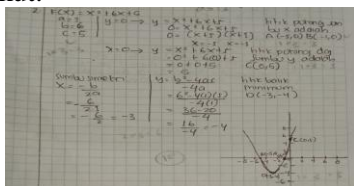 2. F(x) = x² + 6x + 5
a = 1
b = 6
c = 5
y = 0 → y = x² + 6x + 5
0 = x² + 6x + 5
0 = (x+5) (x+1)
x = -5 x = -1
titik potong
sb x adalah
A (-5,0) B (-1,0)
x = 0 → y = x² + 6x + 5
= 0² + 6(0) + 5
= 0 + 0 + 5
= 5
titik potong dg
sumbu y adalah
C (0,5)
sumbu simetri
x = -b
2a
= -6
2.1
= -6
2 = -3
y = b² - 4ac
-4a
= 6² - 4(1)(5)
-4(1)
= 36 - 20
-4
= 16
-4 = -4
titik balik
minimum
D (-3,-4)